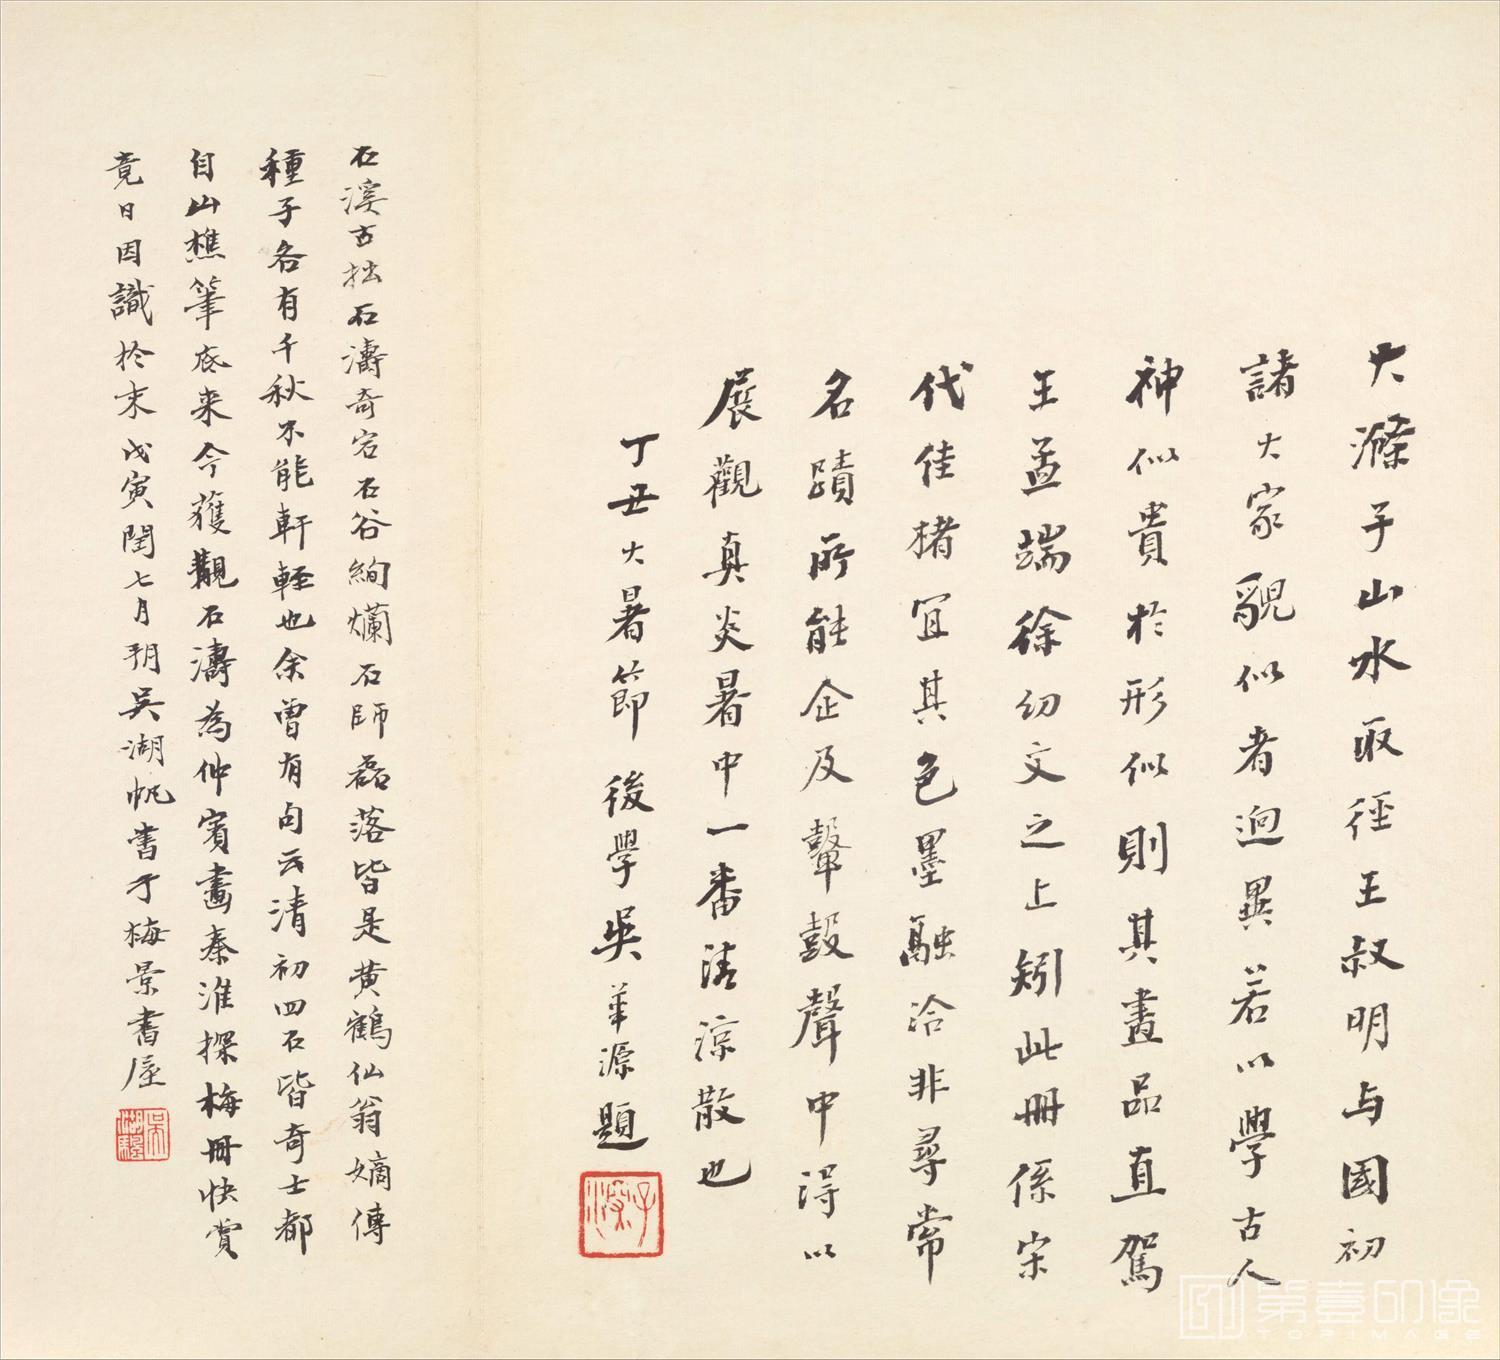 大滌子山水取徑王叔明与國初
諸大家貎似者迥異若以學古人
神似貴於形似則其畫品直駕
王孟端徐幼文之上矧此冊係宋
代佳楮宜其色墨融洽非尋常
名蹟所能企及鼙鼓聲中得以
展觀真炎暑中一番清涼散也
丁丑大暑節後學吳華源題
子深
石溪古拙石濤奇宕石谷絢爛石師磊落皆是黄鶴仙翁嫡傳
種子各有千秋不能軒輊也余曾有句云清初四石皆奇士都
自山樵筆底来今獲觀石濤為仲賓畫秦淮探梅冊快賞
竟日因識於末戊寅閏七月朔吳湖帆書于梅景書屋
吳湖颿
第壹印像
TOPIMAGE